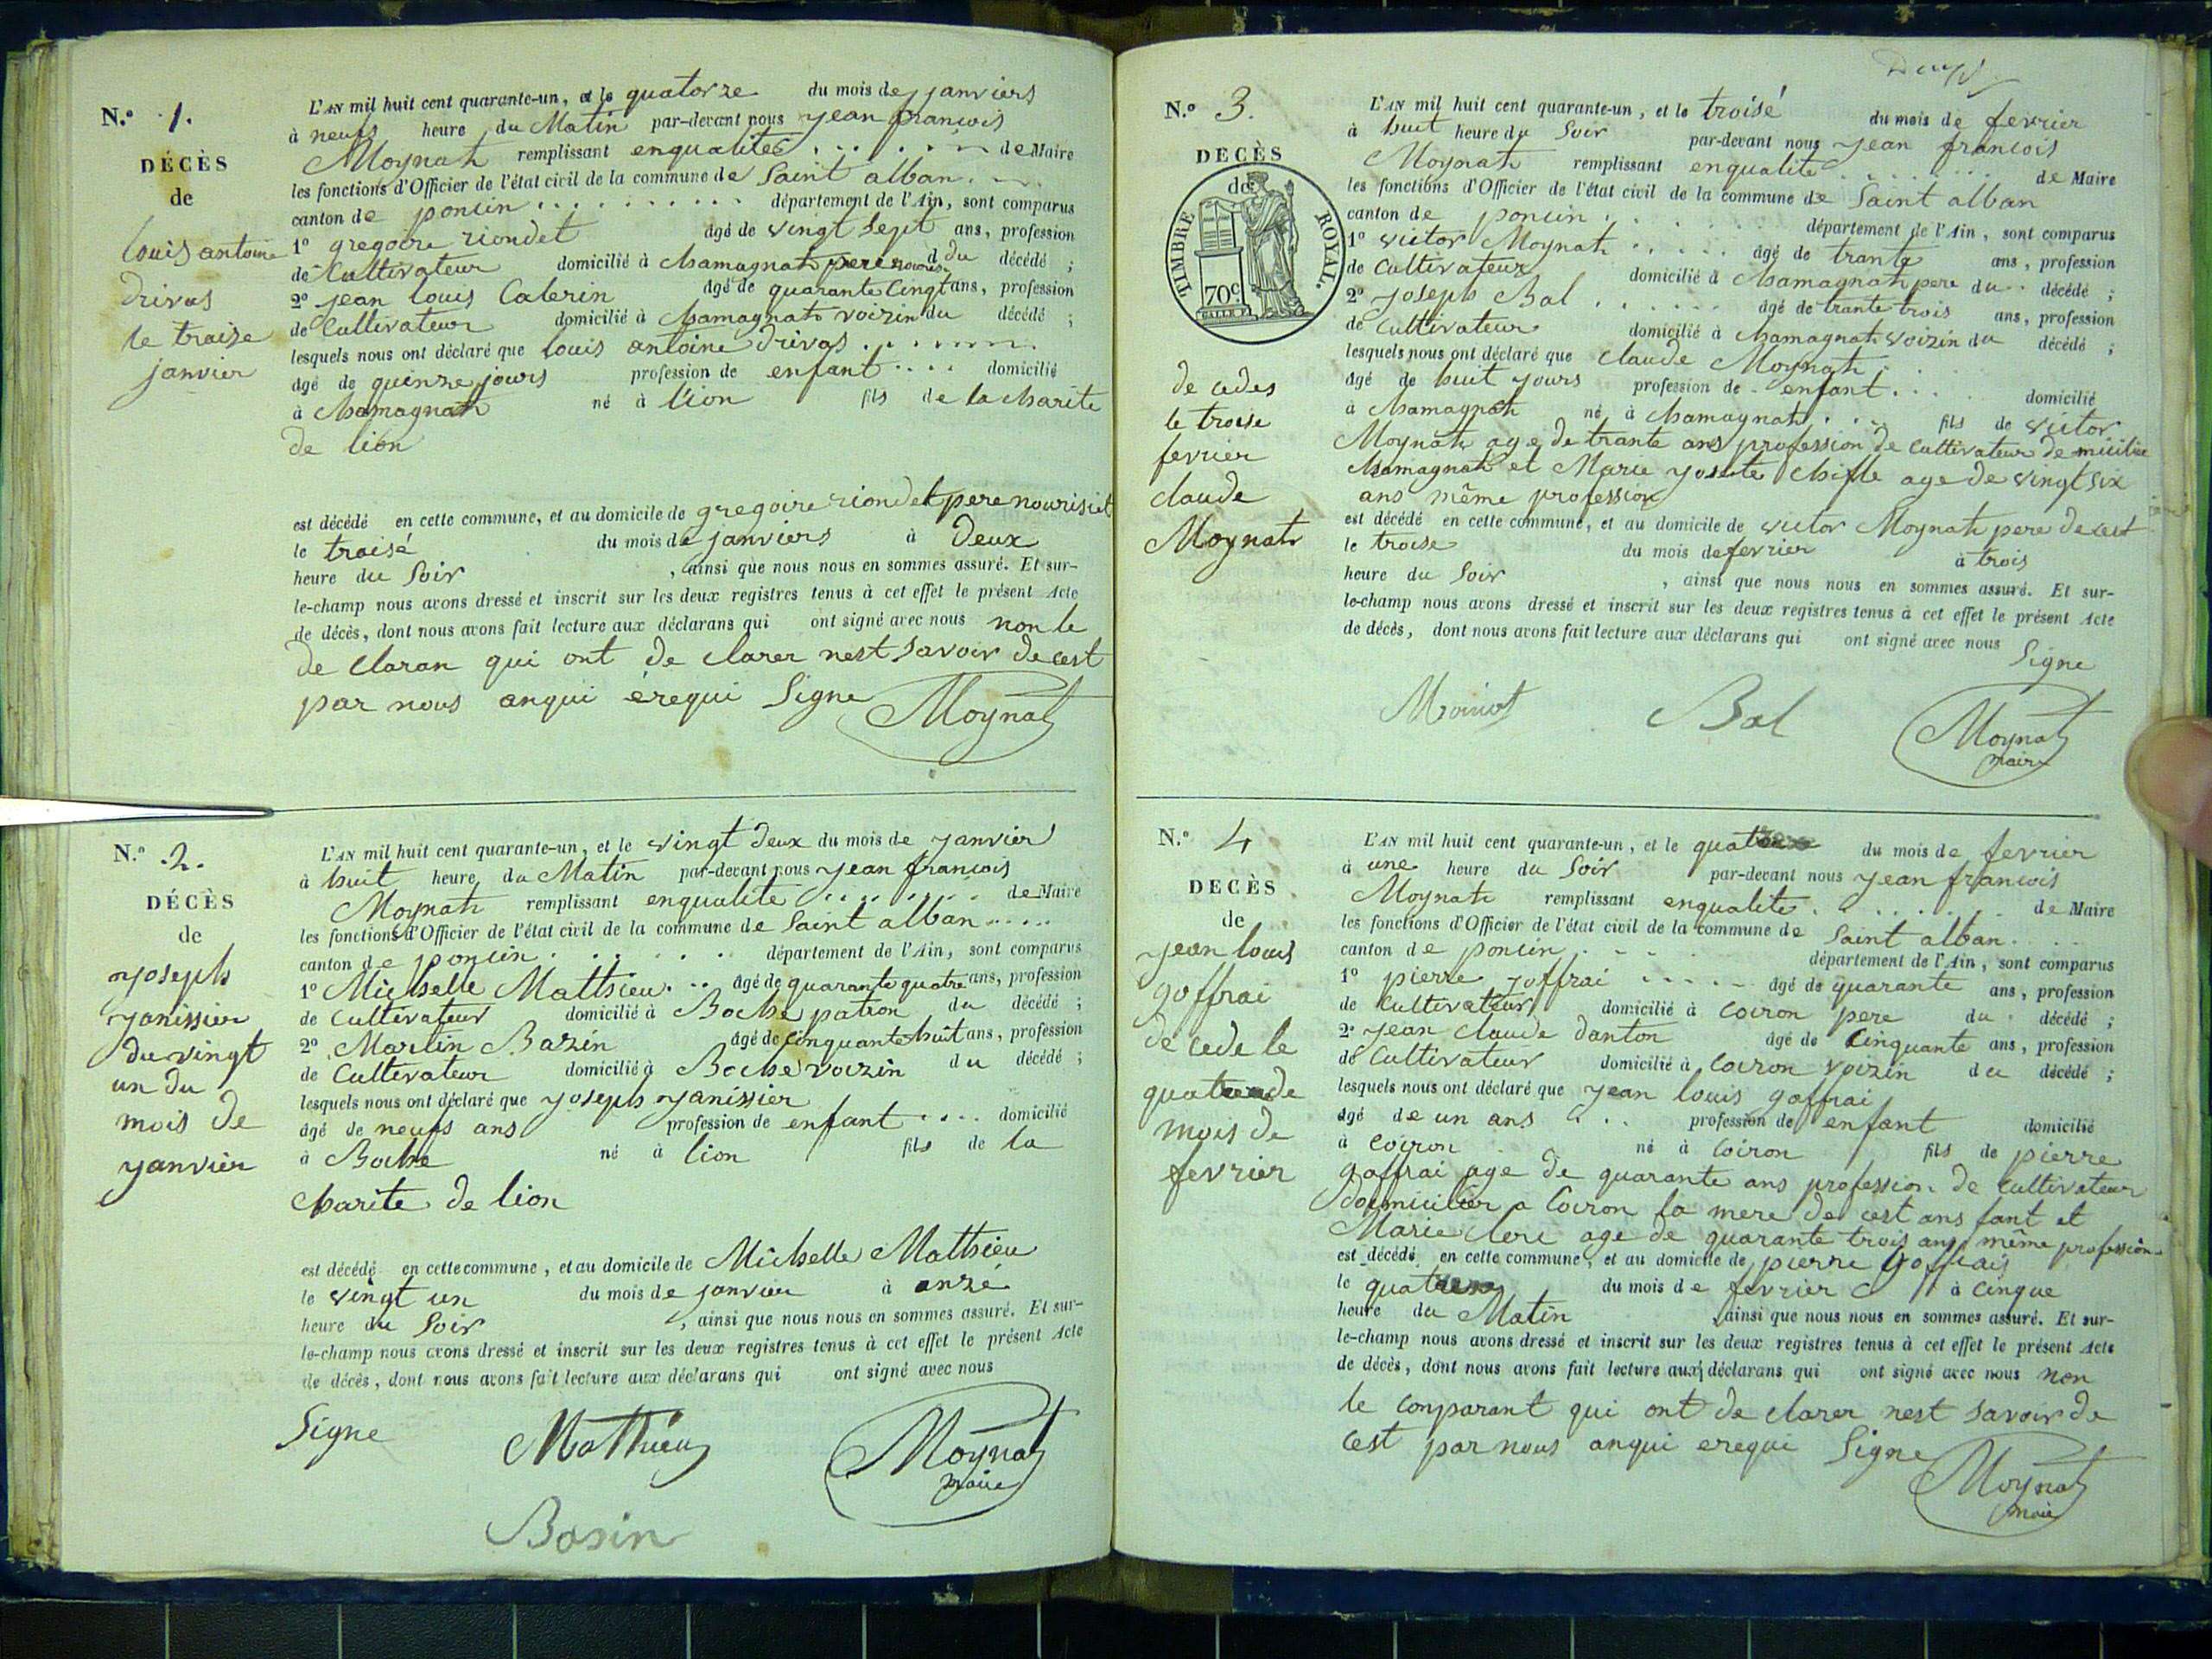 N.º 1.
DÉCÈS
de
louis antoine
drivas
le traize
janvier
L'AN mil huit cent quarante-un, et le quatorze du mois de janviers
à neufs heure du Matin par-devant nous jean françois
Moynat remplissant enqualité de Maire
les fonctions d'Officier de l'état civil de la commune de Saint alban
canton de poncin département de l'Ain, sont comparus
1º gregoire riondet âgé de vingt sept ans, profession
de Cultivateur domicilié à Chamagnat pere du décédé ;
2º jean louis Calerin âgé de quarante cinqt ans, profession
de Cultivateur domicilié à Chamagnat voizin du décédé ;
lesquels nous ont déclaré que louis antoine drivas
âgé de quinze jours profession de enfant domicilié
à Chamagnat né à lion fils de la charite
de lion
est décédé en cette commune, et au domicile de gregoire riondet pere
le traisé du mois de janviers à Deux
heure du Soir , ainsi que nous nous en sommes assuré. Et sur-
le-champ nous avons dressé et inscrit sur les deux registres tenus à cet effet le présent Acte
de décès, dont nous avons fait lecture aux déclarans qui ont signé avec nous non le
de claran qui ont de clarer nest savoir de cest
par nous anqui érequi Signe Moynat
N.º 2.
DÉCÈS
de
joseph
janissier
du vingt
un du
mois de
janvier
L'AN mil huit cent quarante-un, et le vingt deux du mois de janvier
à huit heure du Matin par-devant nous jean françois
Moynat remplissant enqualite de Maire
les fonctions d'Officier de l'état civil de la commune de Saint alban
canton de poncin département de l'Ain, sont comparus
1º Michelle Mathieu âgé de quarante quatre ans, profession
de Cultivateur domicilié à Boche patron du décédé ;
2º Martin Bazin âgé de cinquante huit ans, profession
de Cultivateur domicilié à Boche voizin du décédé ;
lesquels nous ont déclaré que joseph janissier
âgé de neufs ans profession de enfant domicilié
à Boche né à lion fils de la
charite de lion
est décédé en cette commune, et au domicile de Michelle Mathieu
le vingt un du mois de janvier à onze
heure du Soir , ainsi que nous nous en sommes assuré. Et sur-
le-champ nous avons dressé et inscrit sur les deux registres tenus à cet effet le présent Acte
de décès, dont nous avons fait lecture aux déclarans qui ont signé avec nous
Signe Mathieu Moynat
maire
Basin
N.º 3.
DÉCÈS
de
TIMBRE ROYAL.
70c
de cedes
le troise
fevrier
claude
Moynat
L'AN mil huit cent quarante-un, et le troisé du mois de fevrier
à huit heure du Soir par-devant nous jean françois
Moynat remplissant enqualite de Maire
les fonctions d'Officier de l'état civil de la commune de Saint alban
canton de poncin département de l'Ain, sont comparus
1º victor Moynat âgé de trante ans, profession
de Cultivateur domicilié à Chamagnat pere du décédé ;
2º joseph Bal âgé de trante trois ans, profession
de Cultivateur domicilié à Chamagnat voizin du décédé ;
lesquels nous ont déclaré que claude Moynat
âgé de huit jours profession de enfant domicilié
à Chamagnat né à Chamagnat fils de victor
Moynat age de trante ans profession de Cultivateur
Chamagnat et Marie age de vingt six
ans même profession
est décédé en cette commune, et au domicile de victor Moynat pere de cest
le troise du mois de fevrier à trois
heure du Soir , ainsi que nous nous en sommes assuré. Et sur-
le-champ nous avons dressé et inscrit sur les deux registres tenus à cet effet le présent Acte
de décès, dont nous avons fait lecture aux déclarans qui ont signé avec nous
Signe
Bal Moynat
maire
N.º 4
DECÈS
de
jean louis
goffrai
de cede le
de
mois de
fevrier
L'AN mil huit cent quarante-un, et le du mois de fevrier
à une heure du Soir par-devant nous jean françois
Moynat remplissant enqualite de Maire
les fonctions d'Officier de l'état civil de la commune de Saint alban
canton de poncin département de l'Ain, sont comparus
1º pierre joffrai âgé de quarante ans, profession
de Cultivateur domicilié à Coiron pere du décédé ;
2º jean claude danton âgé de cinquante ans, profession
de Cultivateur domicilié à Coiron voizin du décédé ;
lesquels nous ont déclaré que jean louis goffrai
âgé de un ans profession de enfant domicilié
à Coiron né à Coiron fils de pierre
goffrai age de quarante ans profession de Cultivateur
domicilier a Coiron la mere de cest ans fant et
Marie age de quarante trois ans même profession
est décédé en cette commune, et au domicile de pierre
le du mois de fevrier à cinque
heure du Matin ainsi que nous nous en sommes assuré. Et sur-
le-champ nous avons dressé et inscrit sur les deux registres tenus à cet effet le présent Acte
de décès, dont nous avons fait lecture aux déclarans qui ont signé avec nous non
le conparant qui ont de clarer nest savoir de
cest par nous anqui erequi Signe Moynat
maire